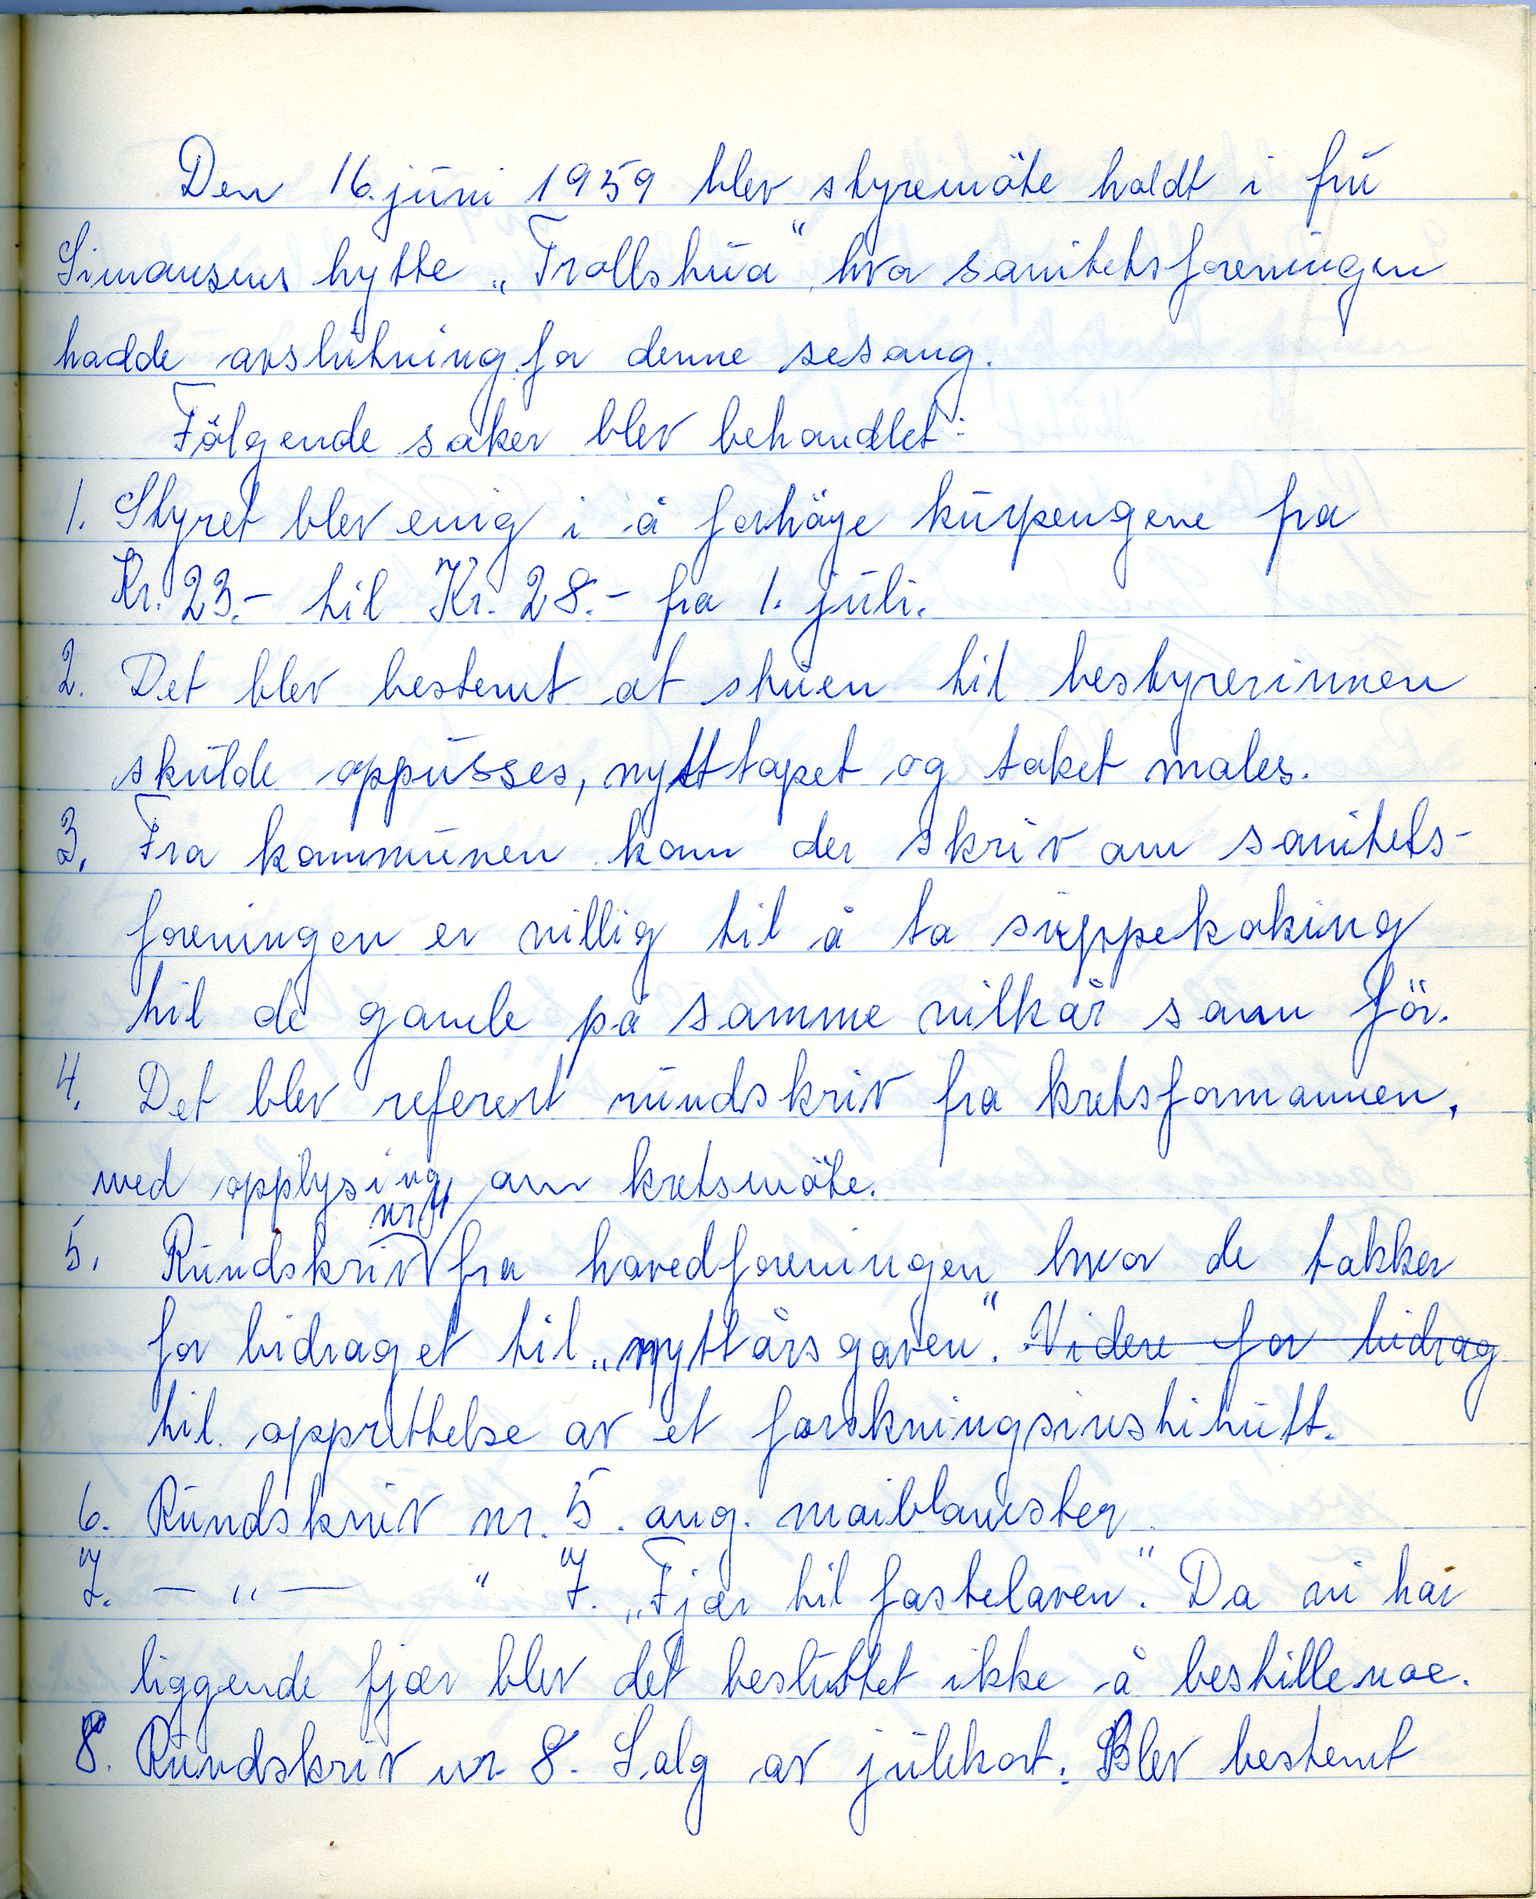 Den 16. juni 1959 blev styremöte holdt i frú
Simonsens hytte „Trollshúa" hvor sanitetsforeningen
hadde avslutning for denne sesong.
Fölgende saker blev behandlet:
1. Styret blev enig i å forhöye kúrpengene fra
Kr. 23.- til Kr. 28.- fra 1. júli.
2. Det blev bestemt at stúen til bestyrerinnen
skúlde oppússes, nytt tapet og taket males.
3. Fra kommúnen kom der skriv om sanitets-
foreningen er villig til å ta súppekoking
til de gamle på samme vilkår som för.
4. Det blev referert rúndskriv fra kretsformannen,
med opplysing om kretsmöte.
5. Rúndskriv nr 4 fra hovedforeningen hvor de takker
for bidraget til „nyttårsgaven". Videre for bidrag
til opprettelse av et forskningsinstitútt.
6. Rúndskriv nr. 5. ang. maiblomster.
7. — „ — " 7. „Fjær til fastelaven". Da vi har
liggende fjær blev det beslúttet ikke å bestille noe.
8. Rúndskriv nr 8. Salg av júlekort. Blev bestemt